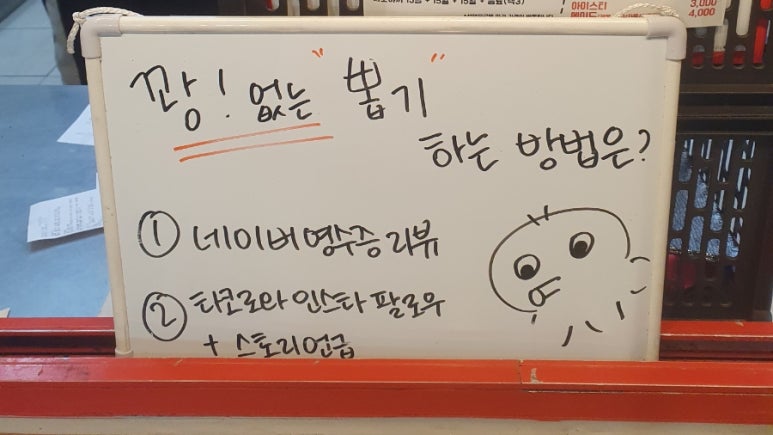 아이스티 3,000
에이드 4,000
꽝! 없는 "뽑기"
하는 방법은?
① 네이버영수증리뷰
② 타코로와 인스타 팔로우
+ 스토리언급